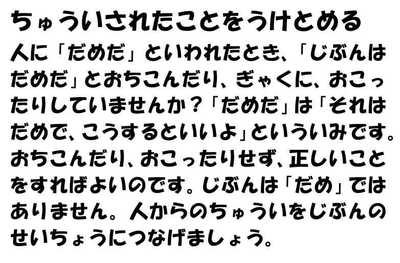 ちゅういされたことをうけとめる
人に「だめだ」といわれたとき、「じぶんは
だめだ」とおちこんだり、ぎゃくに、おこっ
たりしていませんか？「だめだ」は「それは
だめで、こうするといいよ」といういみです。
おちこんだり、おこったりせず、正しいこと
をすればよいのです。じぶんは「だめ」では
ありません。人からのちゅういをじぶんの
せいちょうにつなげましょう。